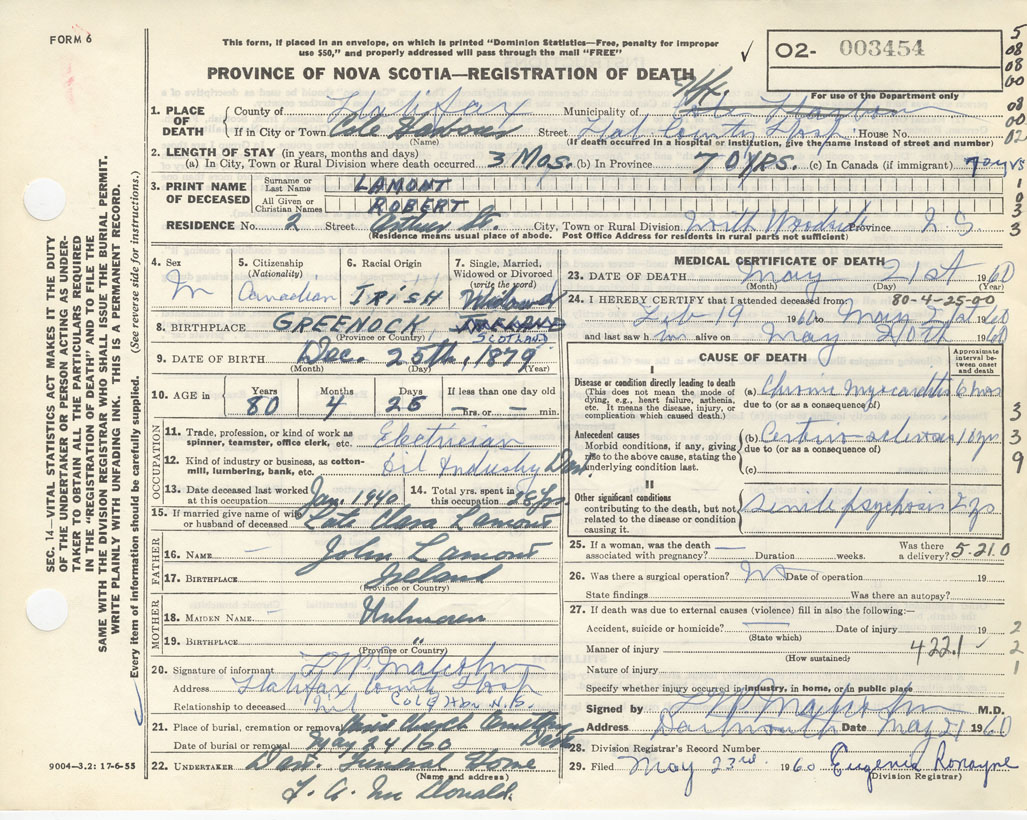 FORM 6
This form, if placed in an envelope, on which is printed "Dominion Statistics—Free, penalty for improper
use $50," and properly addressed will pass through the mail "FREE"
✓
O2- 003454
For use of the Department only
PROVINCE OF NOVA SCOTIA—REGISTRATION OF DEATH
5
08
08
00
08
00
02
1. PLACE OF DEATH
County of Halifax Municipality of
If in City or Town Cole Harbour Street Hal County Hosp House No.
(Name) (If death occurred in a hospital or institution, give the name instead of street and number)
2. LENGTH OF STAY (in years, months and days)
(a) In City, Town or Rural Division where death occurred 3 Mos. (b) In Province 70 YRS. (c) In Canada (if immigrant) 70 yrs
3. PRINT NAME OF DECEASED
Surname or Last Name LAMONT
All Given or Christian Names ROBERT
1
0
3
3
RESIDENCE No. 2 Street St. City, Town or Rural Division North Woodside Province N S
(Residence means usual place of abode. Post Office Address for residents in rural parts not sufficient)
4. Sex
M
5. Citizenship
(Nationality)
Canadian
6. Racial Origin
IRISH
7. Single, Married,
Widowed or Divorced
(write the word)
Widowed
8. BIRTHPLACE GREENOCK, IRELAND
(Province or Country) SCOTLAND
9. DATE OF BIRTH Dec. 25th, 1879
(Month) (Day) (Year)
10. AGE in
Years
80
Months
4
Days
25
If less than one day old
— hrs. or — min.
OCCUPATION
11. Trade, profession, or kind of work as
spinner, teamster, office clerk, etc. Electrician
12. Kind of industry or business, as cotton-
mill, lumbering, bank, etc. Oil Industry Dart.
13. Date deceased last worked
at this occupation Jan. 1940
14. Total yrs. spent in
this occupation yrs.
15. If married give name of wife
or husband of deceased Late Clara Lamont
FATHER
16. NAME John Lamont
17. BIRTHPLACE Ireland
(Province or Country)
MOTHER
18. MAIDEN NAME Unknown
19. BIRTHPLACE "
(Province or Country)
20. Signature of informant
Address Halifax County Hosp
Relationship to deceased Nil Cole Hbr N.S.
21. Place of burial, cremation or removal Cemetery
Date of burial or removal May 24/60 Dart
22. UNDERTAKER Dart. Funeral Home
(Name and address)
McDonald.
MEDICAL CERTIFICATE OF DEATH
23. DATE OF DEATH May 21st 1960
(Month) (Day) (Year)
80-4-25-00
24. I HEREBY CERTIFY that I attended deceased from:
Feb 19 1960 to May 21st 1960
and last saw h im alive on May 20th 1960
CAUSE OF DEATH
Approximate
interval be-
tween onset
and death
I
Disease or condition directly leading to death
(This does not mean the mode of
dying, e.g., heart failure, asthenia,
etc. It means the disease, injury, or
complication which caused death.)
(a) Chronic Myocarditis 6 mos
due to (or as a consequence of)
Antecedent causes
Morbid conditions, if any, giving
rise to the above cause, stating the
underlying condition last.
(b) sclerosis 10 yrs
due to (or as a consequence of)
(c)
3
3
9
II
Other significant conditions
contributing to the death, but not
related to the disease or condition
causing it.
senile psychosis 2 yrs
25. If a woman, was the death
associated with pregnancy? — Duration weeks. Was there
a delivery? 5.21.0
26. Was there a surgical operation? No Date of operation 19
State findings Was there an autopsy?
27. If death was due to external causes (violence) fill in also the following:—
Accident, suicide or homicide? Date of injury 19
(State which)
Manner of injury 422.1
(How sustained)
Nature of injury
2
2
1
Specify whether injury occurred in industry, in home, or in public place
Signed by M.D.
Address Dartmouth Date May 21 1960
28. Division Registrar's Record Number
29. Filed May 23rd 1960 Eugenia Ronayne
(Division Registrar)
SEC. 14—VITAL STATISTICS ACT MAKES IT THE DUTY
OF THE UNDERTAKER OR PERSON ACTING AS UNDER-
TAKER TO OBTAIN ALL THE PARTICULARS REQUIRED
IN THE "REGISTRATION OF DEATH" AND TO FILE THE
SAME WITH THE DIVISION REGISTRAR WHO SHALL ISSUE THE BURIAL PERMIT.
WRITE PLAINLY WITH UNFADING INK. THIS IS A PERMANENT RECORD.
Every item of information should be carefully supplied. (See reverse side for instructions.)
9004—3.2: 17-6-55